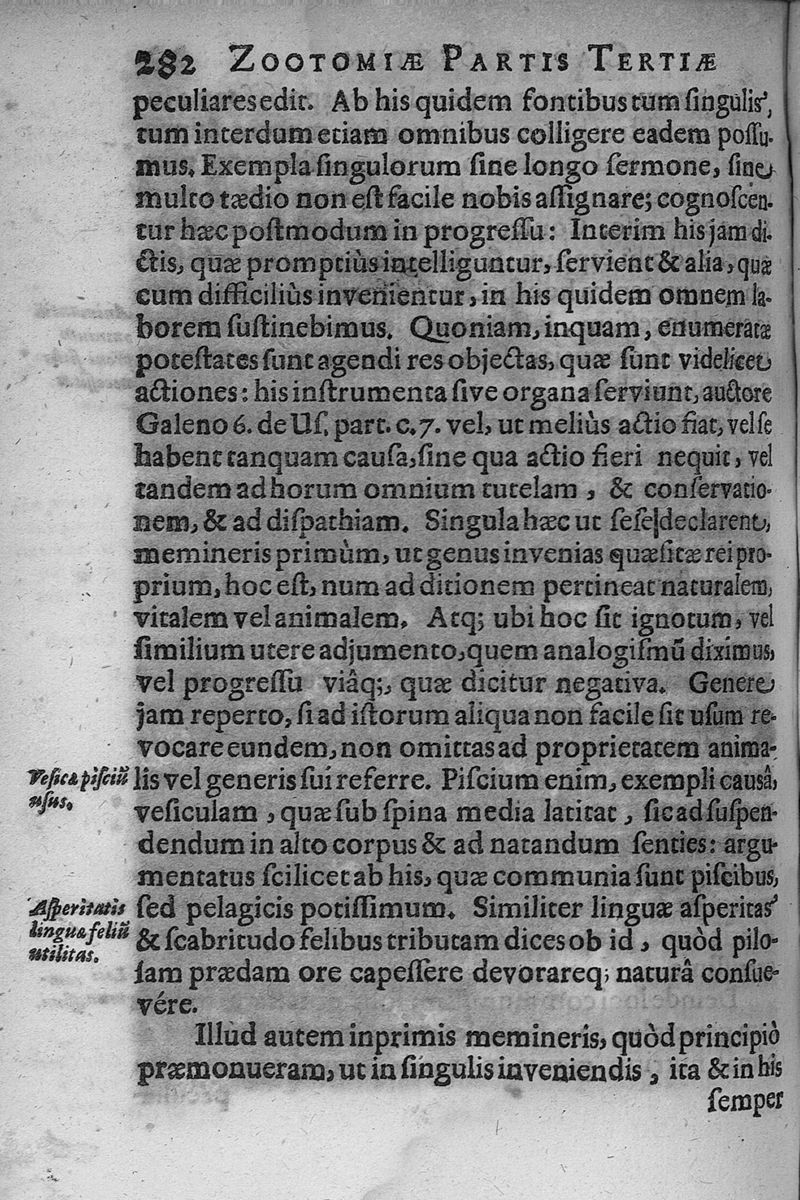 282 ZOOTOMIÆ PARTIS TERTIÆ
peculiares edit. Ab his quidem fontibus tum ſingulis,
tum interdum etiam omnibus colligere eadem poſſu-
mus. Exempla ſingulorum ſine longo ſermone, ſine
multo tædio non eſt facile nobis aſſignare; cognoſcen-
tur hæc poſtmodum in progreſſu: Interim his jam di-
ctis, quæ promptiùs intelliguntur, ſervient & alia, quæ
cum difficiliùs invenientur, in his quidem omnem la-
borem ſuſtinebimus. Quoniam, inquam, enumeratæ
poteſtates ſunt agendi res objectas, quæ ſunt videlicet
actiones: his inſtrumenta ſive organa ſerviunt, auctore
Galeno 6. de Uſ. part. c. 7. vel, ut meliùs actio fiat, vel ſe
habent tanquam cauſa, ſine qua actio fieri nequit, vel
tandem ad horum omnium tutelam, & conſervatio-
nem, & ad diſpathiam. Singula hæc ut ſeſe declarent,
memineris primùm, ut genus invenias quæſitæ rei pro-
prium, hoc eſt, num ad ditionem pertineat naturalem,
vitalem vel animalem. Atq; ubi hoc ſit ignotum, vel
ſimilium utere adjumento, quem analogiſmũ diximus,
vel progreſſu viâq;, quæ dicitur negativa. Genere
jam reperto, ſi ad iſtorum aliqua non facile ſit uſum re-
vocare eundem, non omittas ad proprietatem anima-
Veſicæ piſciũ
uſus.
lis vel generis ſui referre. Piſcium enim, exempli causâ,
veſiculam, quæ ſub ſpina media latitat, ſic ad ſuſpen-
dendum in alto corpus & ad natandum ſenties: argu-
mentatus ſcilicet ab his, quæ communia ſunt piſcibus,
Aſperitatis
linguæ feliũ
utilitas.
ſed pelagicis potiſſimum. Similiter linguæ aſperitas
& ſcabritudo felibus tributam dices ob id, quòd pilo-
ſam prædam ore capeſſere devorareq; naturâ conſue-
vére.
Illud autem inprimis memineris, quòd principiò
præmonueram, ut in ſingulis inveniendis, ita & in his
ſemper